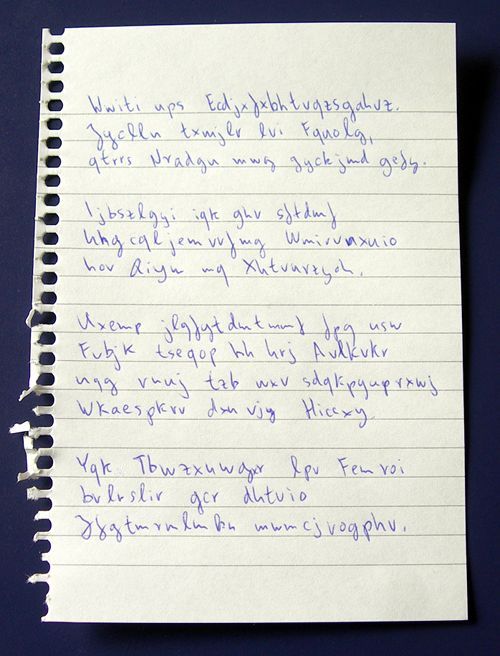 Wwiti ups EcdjxfxbhtvqzsgahvZ.
Jycllu txmjlr lvi Fquolg,
qtrrs Nradgu mwq gyckjmd gefy.
Ijbszlgyi iqk ghv sftdmf
hhgcqljemvvfmg Wmirvnxuio
hov Qiyu mq Xhtvurzyoh.
Uxemp jlqfytdmtmmf fpg usw
Fvbjk tseqop hh hrj AvlKvkr
ugg vuuj tzb wxv sdqkpyuprxwj
Wkaespkrv dxu vjy Hiccxy
Yqk Tbwzxuwgxr lpv Femvoi
bvlrslir gcr dhtvio
mwmcjvogphv.